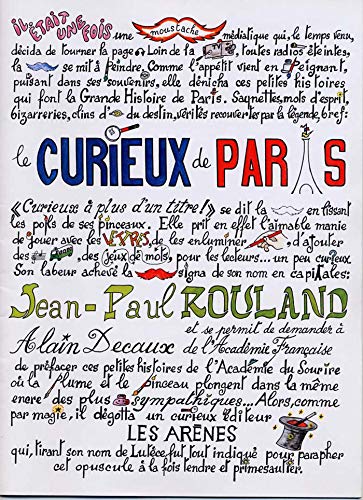 IL ÉTAIT UNE FOIS une moustache médiatique qui, le temps venu,
décida de tourner la page. Loin de la , toutes radios éteintes,
la se mit à peindre. Comme l'appétit vient en peignant,
puisant dans ses souvenirs, elle dénicha ces petites histoires
qui font la Grande Histoire de Paris. Saynettes, mots d'esprit,
bizarreries, clins d' du destin, vérités recouvertes par la légende, bref:
le CURIEUX de PARIS
«Curieuse à plus d'un titre!» se dit la en lissant
les poils de ses pinceaux. Elle prit en effet l'aimable manie
de jouer avec les LETTRES, de les enluminer, d'ajouter
des , des , des jeux de mots, pour les lecteurs... un peu curieux.
Son labeur achevé la signa de son nom en capitales:
Jean-Paul ROULAND
et se permit de demander à
Alain Decaux de l'Académie Française
de préfacer ces petites histoires de l'Académie du Sourire
où la plume et le pinceau plongent dans la même
encre des plus sympathiques... Alors, comme
par magie, il dégotta un curieux éditeur
LES ARÈNES
qui, tirant son nom de Lutèce, fut tout indiqué pour parapher
cet opuscule à la fois tendre et primesautier.